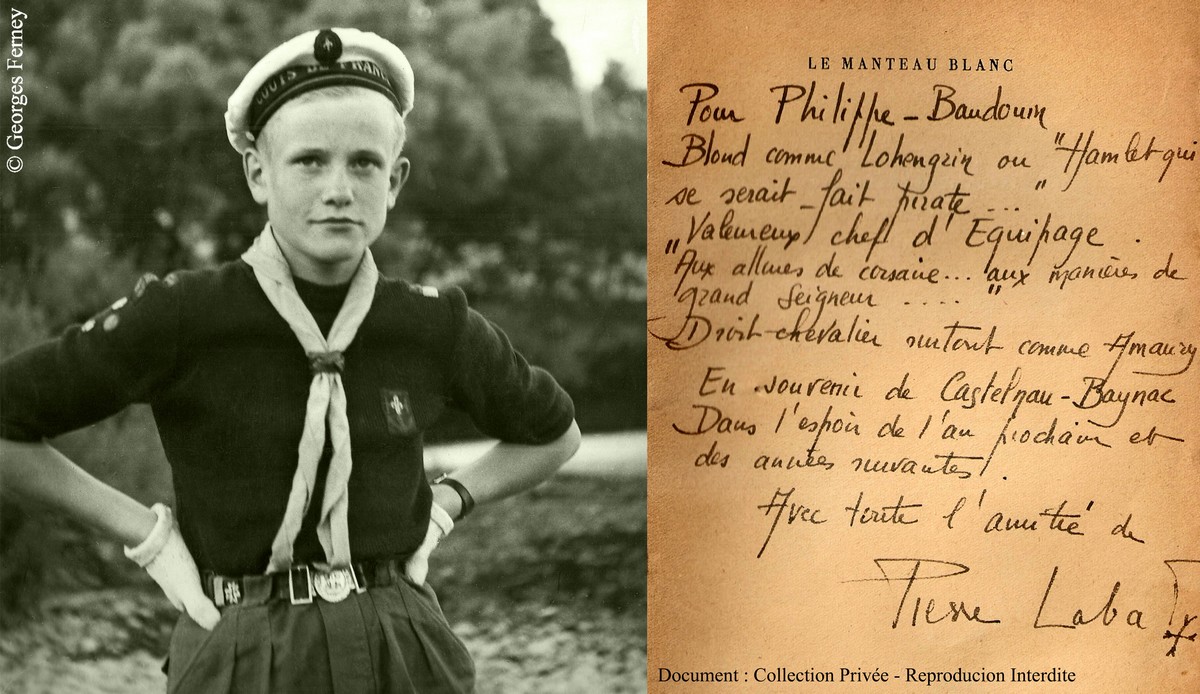 © Georges Ferney
SCOUTS DE FRANCE
LE MANTEAU BLANC
Pour Philippe-Baudouin
Blond comme Lohengrin ou "Hamlet qui
se serait fait pirate... "
Valeureux chef d'Equipage .
"Aux allures de corsaire... aux manières de
grand Seigneur .... "
Droit-chevalier surtout comme Amaury
En souvenir de Castelnau-Baynac
Dans l'espoir de l'an prochain et
des années suivantes .
Avec toute l'amitié de
Pierre Labat
Document : Collection Privée - Reproducion Interdite